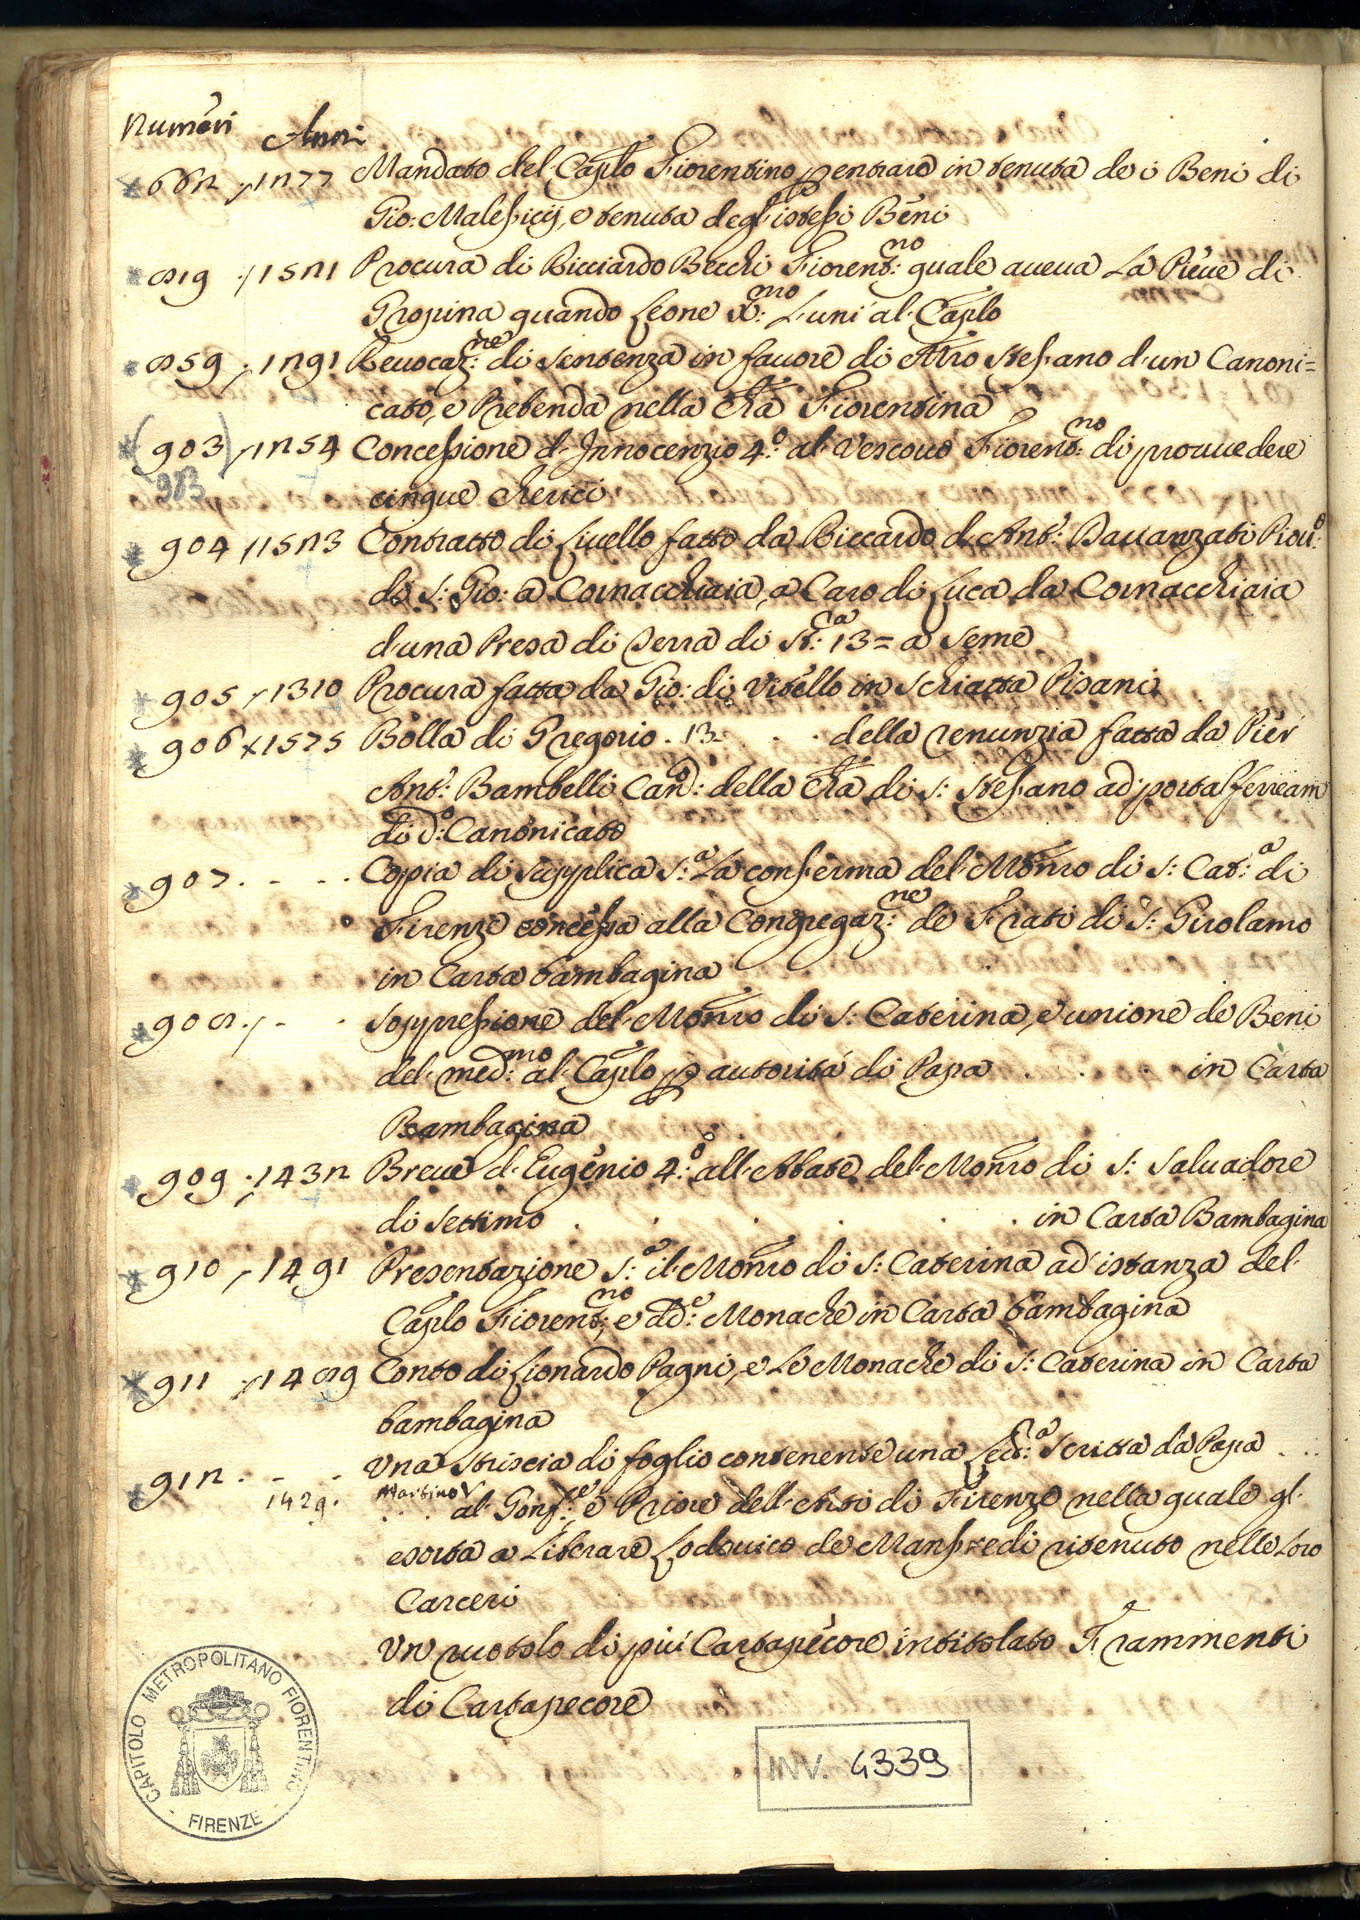 Numeri Anni
662 1277 Mandato del Caplo Fiorentino p entrare in tenuta de i Beni di
Gio: Malefici, e tenuta degl'istessi Beni
819 1521 Procura di Ricciardo Becchi Fiorent:no quale aveva La Pieve di
Gropina quando Leone X:mo L'unì al Caplo
859 1291 Revocaz:ne di Sentenza in favore di Mro Stefano d'un Canoni=
cato, e Prebenda nella Cħa Fiorentina
(903) 1254 Concessione d'Innocenzio 4:o al Vescovo Fiorent:no di provvedere
983 cinque cherici
904 1523 Contratto di Livello fatto da Riccardo d'Ant:o Davanzati Piov:o
di S: Gio: a Cornacchiaia, a Caro di Luca da Cornacchiaia
d'una Presa di Terra di St:ra 13= a Seme
905 1310 Procura fatta da Gio: di Vitello in Schiatta Pisani
906 1575 Bolla di Gregorio . 13 . . della renunzia fatta da Pier
Ant:o Bambelli Can:o della Cħa di S: Stefano ad portas ferream
di d:o Canonicato
907. - - . Copia di supplica S:a La conferma del Monro di S: Cat:a di
Firenze concessa alla Congregaz:ne de Frati di S: Girolamo
in Carta bambagina
908. - . Soppressione del Monro di S: Caterina, e unione de Beni
del med:mo al Caplo p autorità di Papa . . . in Carta
Bambagina
909 1432 Breve d'Eugenio 4:o all'Abate del Monro di S: Salvadore
di Settimo . . . . . in Carta Bambagina
910 1491 Presentazione S:a il Monro di S: Caterina ad istanza del
Caplo Fiorent:no, e dd:e Monache in Carta bambagina
911 1489 Conto di Lionardo Pagni, e Le Monache di S: Caterina in Carta
bambagina
912. - - . Una Striscia di foglio contenente una Lett:ra Scritta da Papa . . .
1429. Martino V . . . al Gonf:re e Priore dell'Arti di Firenze nella quale gl'
esorta a Liberare Lodovico de Manfredi ritenuto nelle Loro
Carceri
Un ruotolo di più Cartapecore intitolato Frammenti
di Cartapecore
CAPITOLO METROPOLITANO FIORENTINO - FIRENZE -
INV. 4339